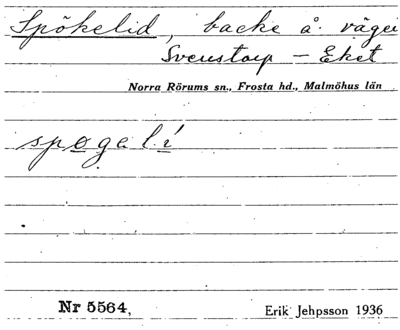 Spökelid, backe å vägen
Svenstorp – Eket
Norra Rörums sn., Frosta hd., Malmöhus län
spøgəlí
Nr 5564,
Erik Jehpsson 1936